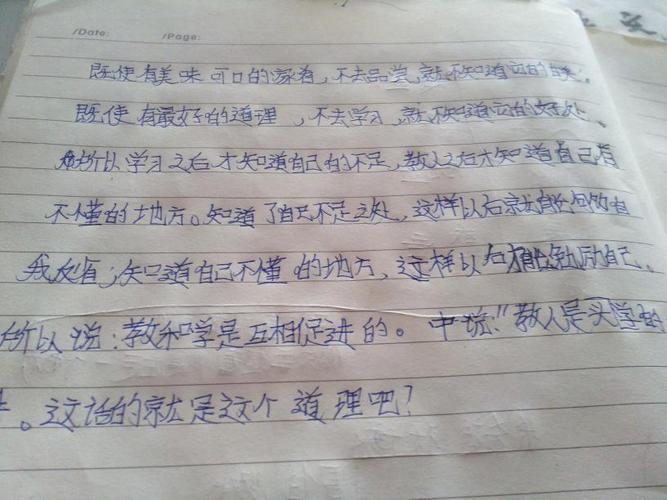 /Date: /Page:
既使有美味可口的家肴，不去品尝，就不知道它的味美。
既使有最好的道理，不去学习，就不知道它的好处。
所以学习之后才知道自己的不足，教人之后才知道自己有
不懂的地方。知道了自己不足之处，这样以后就能
我反省；知道自己不懂的地方，这样以后才能勉励自己。
所以说：教和学是互相促进的。中说："教人是
。这话的就是这个道理吧？